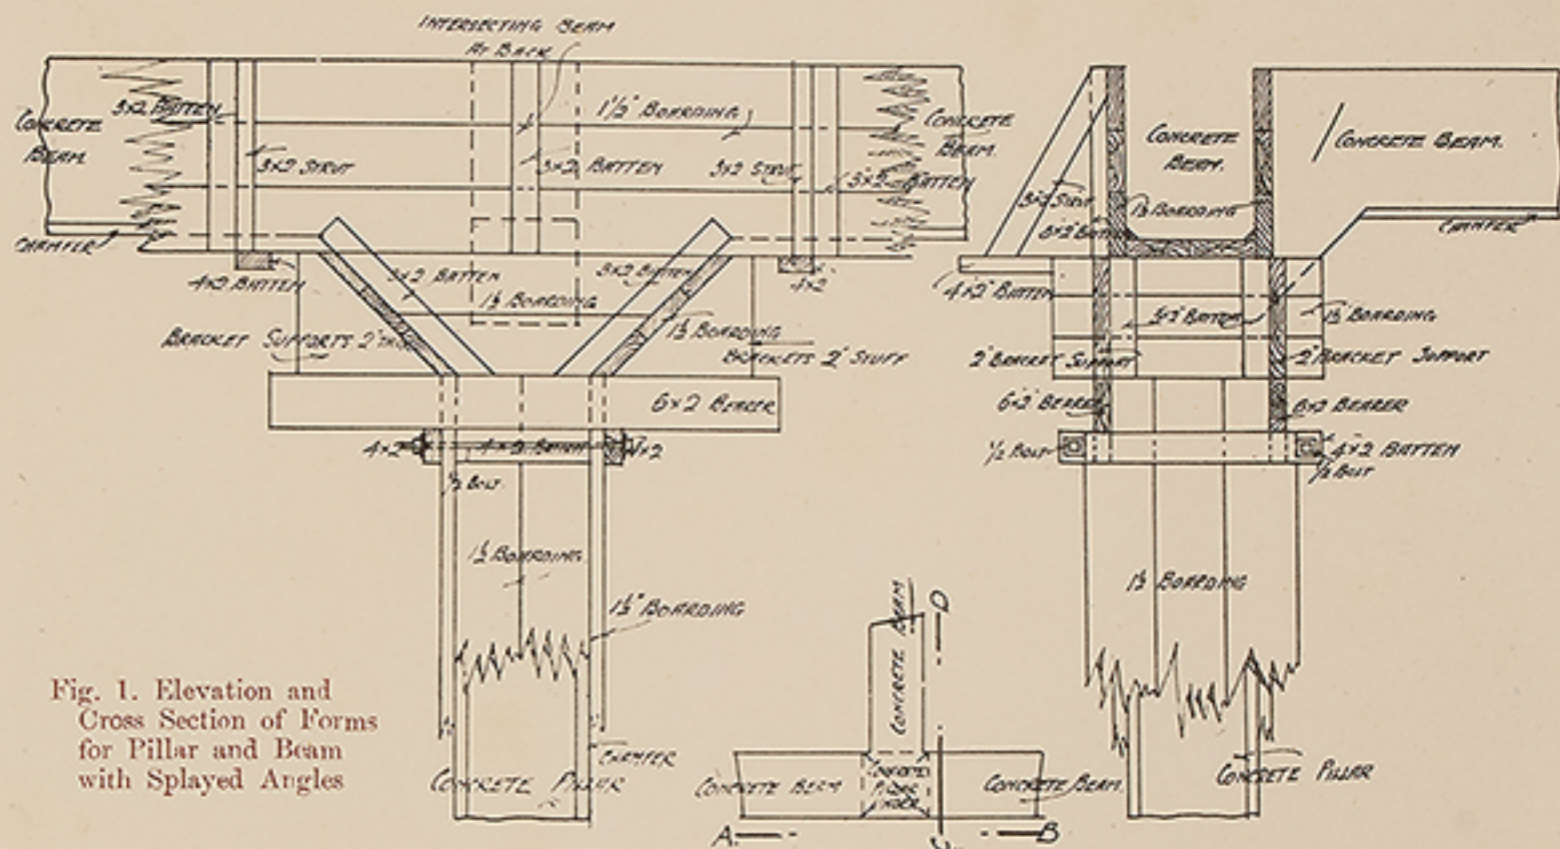 INTERSECTING BEAM
AT BACK
CONCRETE
BEAM
3×2 BATTEN
3×2 STRUT
1½" BOARDING
3×2 BATTEN
3×2 STRUT
3×2 BATTEN
CONCRETE
BEAM.
CHAMFER
4×2 BATTEN
3×2 BATTEN
1½ BOARDING
3×2 BATTEN
4×2
BRACKET SUPPORTS 2"
1½ BOARDING
BRACKETS 2" STUFF
6×2 BEARER
4×2
4×2 BATTEN
4×2
½ BOLT
1½ BOARDING
1½" BOARDING
CHAMFER
CONCRETE PILLAR
CONCRETE
BEAM.
CONCRETE BEAM.
3×2 STRUT
1½ BOARDING
CHAMFER
4×2" BATTEN
BATTEN
1½" BOARDING
2" BRACKET SUPPORT
2" BRACKET SUPPORT
6×2" BEARER
6×2 BEARER
½ BOLT
4×2 BATTEN
½ BOLT
1½ BOARDING
CONCRETE PILLAR
CONCRETE BEAM
D
CONCRETE BEAM
CONCRETE
PILLAR
UNDER
CONCRETE BEAM.
A.
B
Fig. 1. Elevation and
Cross Section of Forms
for Pillar and Beam
with Splayed Angles